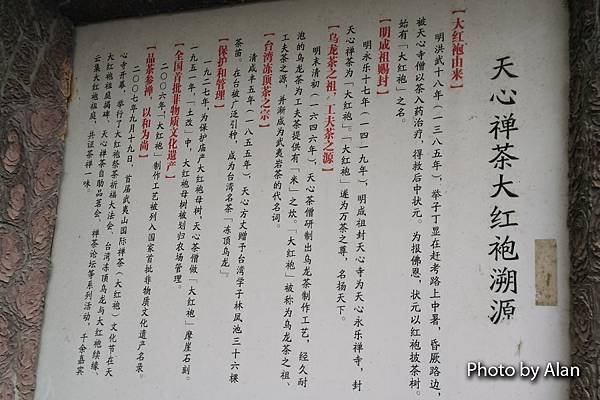 天心禅茶大红袍溯源
【大红袍由来】
明洪武十八年（一三八五年），举子丁显在赶考路上中暑，昏厥路边，
被天心寺僧以茶入药治疗，得救后中状元。为报佛恩，状元以红袍披茶树。
始有「大红袍」之名。
【明成祖赐封】
明永乐十七年（一四一九年），明成祖封天心寺为天心永乐禅寺，封
天心禅茶为「大红袍」。「大红袍」遂为万茶之尊，名扬天下。
【乌龙茶之祖、工夫茶之源】
明末清初（一六四六年），天心茶僧研制出乌龙茶制作工艺，经久耐
泡的乌龙茶为工夫茶提供有「米」之炊。「大红袍」被称为乌龙茶之祖、
工夫茶之源，并渐成为武夷岩茶的代名词。
【台湾冻顶茶之宗】
清咸丰五年（一八五五年），天心方丈赠于台湾学子林凤池三十六棵
茶苗。在台被广泛引种，成为台湾名茶「冻顶乌龙」。
【保护和管理】
一九二七年，为保护庙产大红袍母树，天心茶僧做「大红袍」摩崖石刻。
一九五一年，「土改」中，大红袍母树被划归农场管理。
【全国首批非物质文化遗产】
二〇〇六年，「大红袍」制作工艺被列入国家首批非物质文化遗产名录。
【品茶参禅，以和为尚】
二〇〇七年九月十九日，首届武夷山国际禅茶（大红袍）文化节在天
心寺开幕，举行了大红袍祭茶祈福大法会、台湾冻顶乌龙与大红袍续缘、
大红袍祖庭揭碑、天心禅茶自助品茗会、禅茶论坛等系列活动，千余嘉宾
云集大红袍祖庭，共证茶禅一味。
Photo by Alan